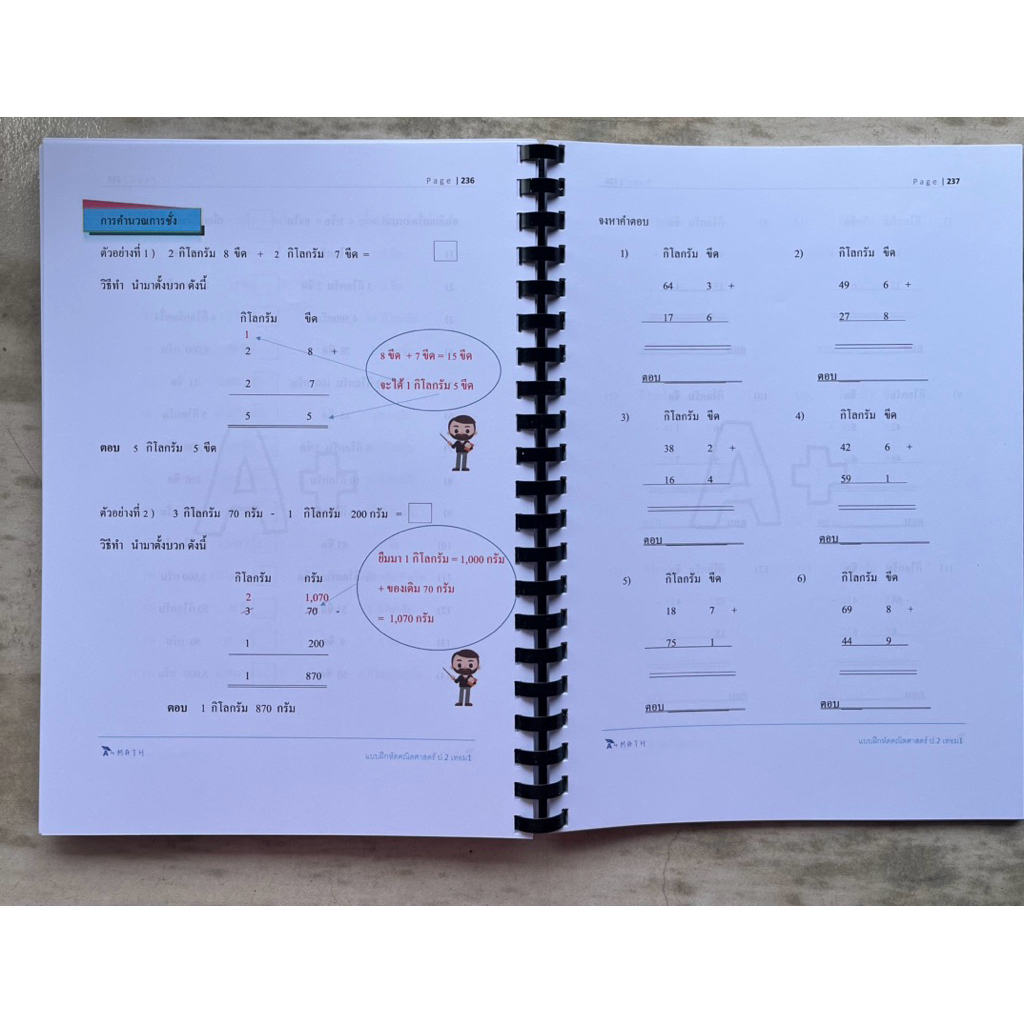 Page | 236
การคำนวณการชั่ง
ตัวอย่างที่ 1 ) 2 กิโลกรัม 8 ขีด + 2 กิโลกรัม 7 ขีด =
วิธีทำ นำมาตั้งบวก ดังนี้
กิโลกรัม ขีด
1
2 8 +
2 7
5 5
8 ขีด + 7 ขีด = 15 ขีด
จะได้ 1 กิโลกรัม 5 ขีด
ตอบ 5 กิโลกรัม 5 ขีด
ตัวอย่างที่ 2 ) 3 กิโลกรัม 70 กรัม - 1 กิโลกรัม 200 กรัม =
วิธีทำ นำมาตั้งบวก ดังนี้
กิโลกรัม กรัม
2 1,070
3 70 -
1 200
1 870
ยืมมา 1 กิโลกรัม = 1,000 กรัม
+ ของเดิม 70 กรัม
= 1,070 กรัม
ตอบ 1 กิโลกรัม 870 กรัม
A+ MATH
แบบฝึกหัดคณิตศาสตร์ ป.2 เทอม1
Page | 237
จงหาคำตอบ
1) กิโลกรัม ขีด
64 3 +
17 6
ตอบ
2) กิโลกรัม ขีด
49 6 +
27 8
ตอบ
3) กิโลกรัม ขีด
38 2 +
16 4
ตอบ
4) กิโลกรัม ขีด
42 6 +
59 1
ตอบ
5) กิโลกรัม ขีด
18 7 +
75 1
ตอบ
6) กิโลกรัม ขีด
69 8 +
44 9
ตอบ
A+ MATH
แบบฝึกหัดคณิตศาสตร์ ป.2 เทอม1
A+
A+